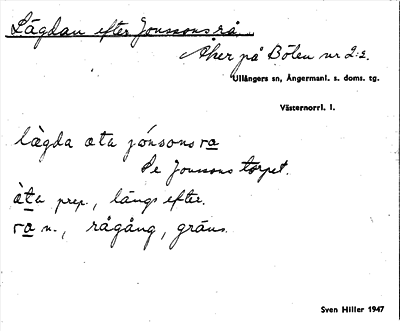 Lägdan efter Jonssons rå
Åker på Bölen nr 2:2.
Ullångers sn, Ångermanl. s. doms. tg.
Västernorrl. l.
lägda ata jónsons ra
Se Jonssons torpet.
àta prep., längs efter.
ra n., rågång, gräns.
Sven Hiller 1947